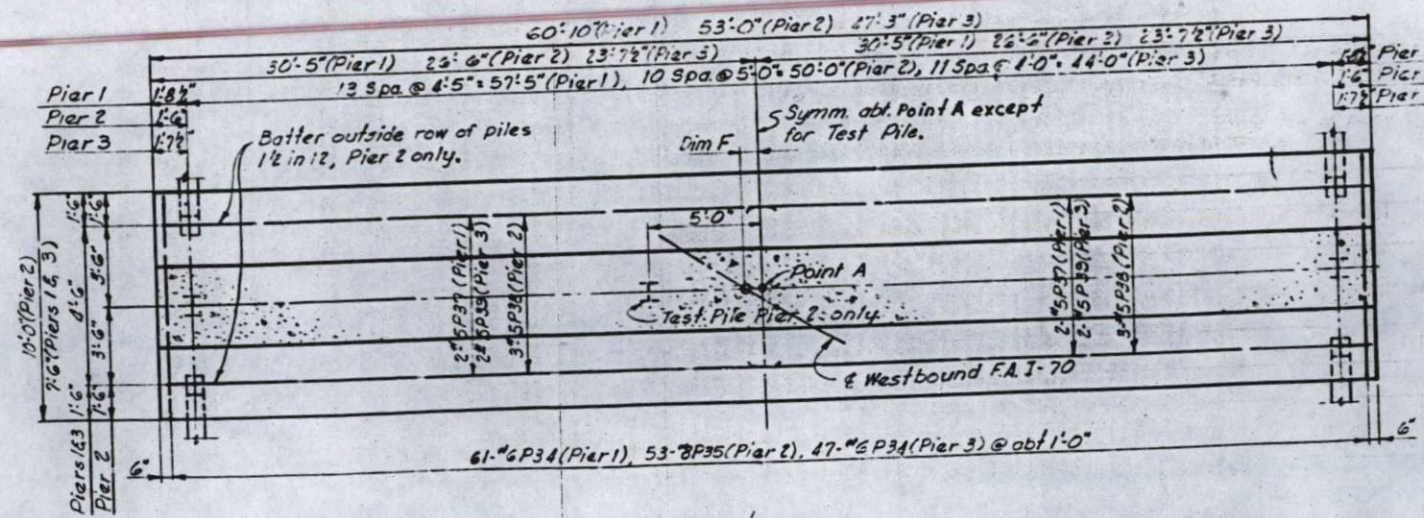 60'-10"(Pier 1) 53'-0"(Pier 2) 47'-3"(Pier 3)
30'-5"(Pier 1) 26'-6"(Pier 2) 23'-7½"(Pier 3)
30'-5"(Pier 1) 26'-6"(Pier 2) 23'-7½"(Pier 3)
13 Spa @ 4'-5" = 57'-5"(Pier 1), 10 Spa. @ 5'-0" = 50'-0"(Pier 2), 11 Spa @ 4'-0" = 44'-0"(Pier 3)
Pier 1 1'-8½"
Pier 2 1'-6"
Pier 3 1'-7½"
Pier
1'-6" Pier
1'-7½" Pier
Batter outside row of piles
1½ in 12, Pier 2 only.
Dim F
Symm. abt. Point A except
for Test Pile.
5'-0"
Point A
Test Pile Pier 2 only
℄ Westbound F.A. I-70
10'-0"(Pier 2)
7'-6"(Piers 1 & 3)
1'-6" 4'-6" 1'-6"
Piers 1&3
1'-6" 3'-6" 3'-6" 1'-6"
Pier 2
2-#5P37(Pier 1)
2-#5P39(Pier 3)
3-#5P38(Pier 2)
2-#5P37(Pier 1)
2-#5P39(Pier 3)
3-#5P38(Pier 2)
6"
61-#6P34(Pier 1), 53-#8P35(Pier 2), 47-#6P34(Pier 3) @ abt 1'-0"
6"